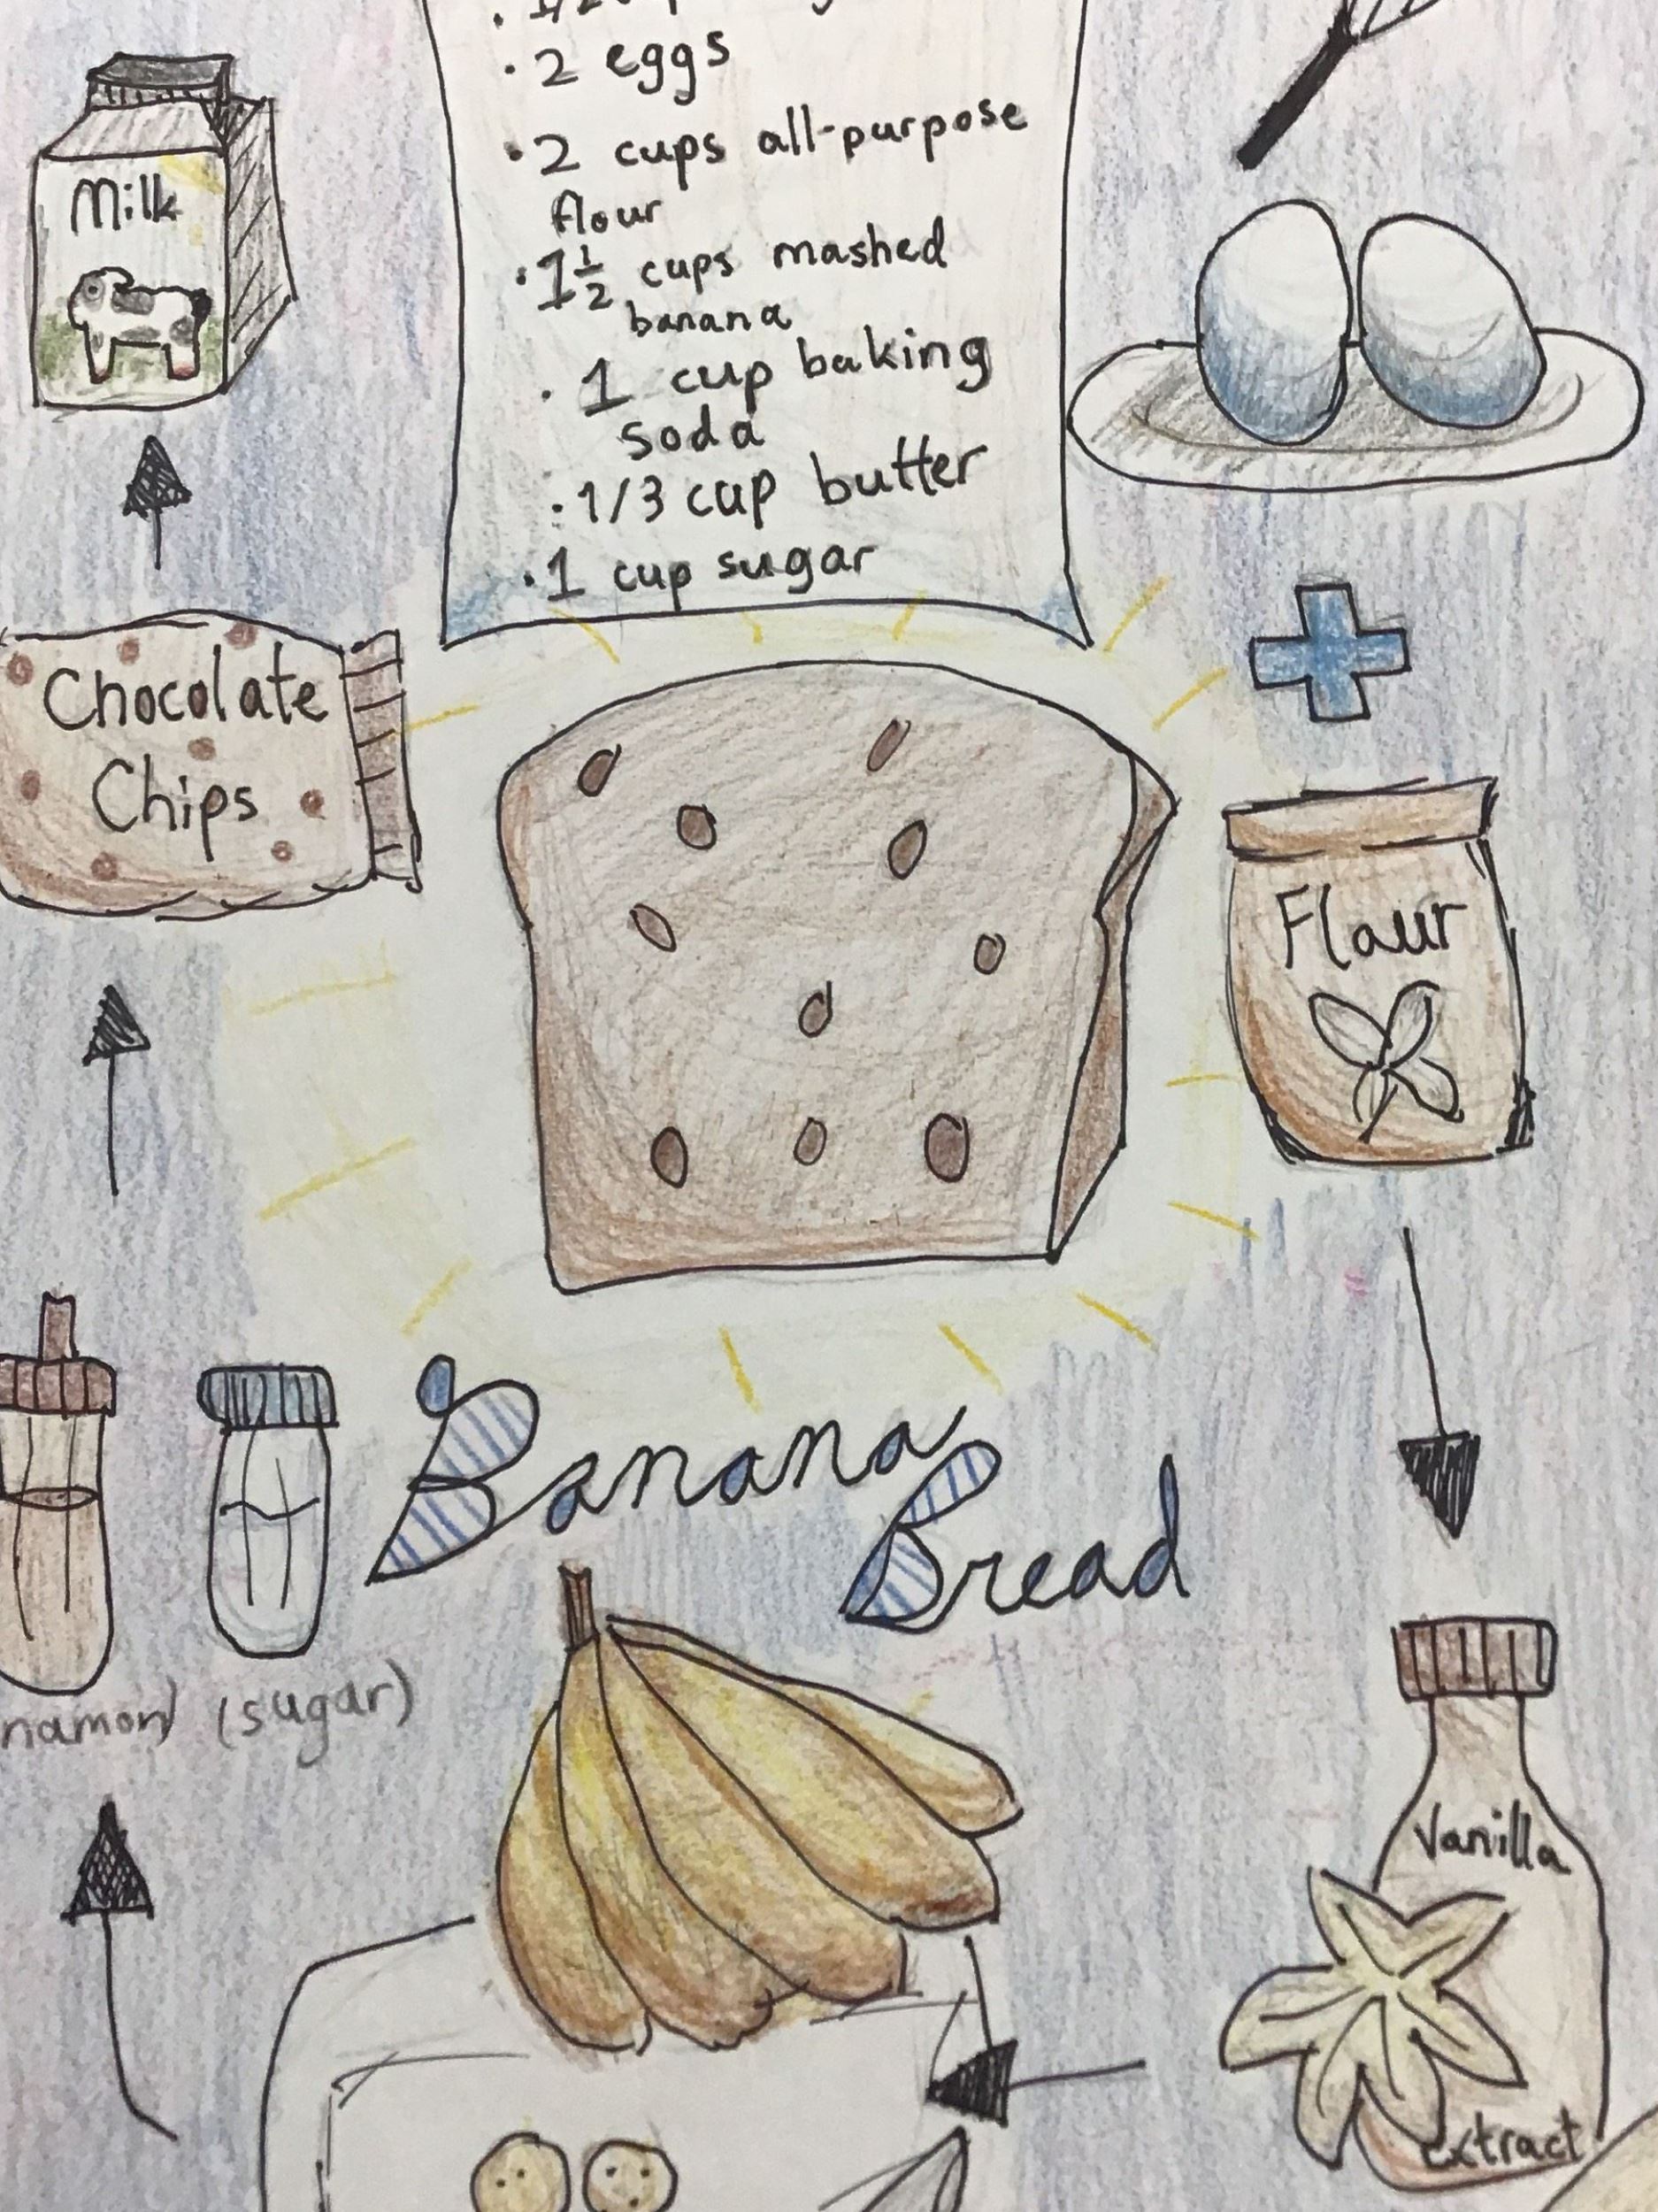 · 2 eggs
· 2 cups all-purpose
flour
· 1 1/2 cups mashed
banana
· 1 cup baking
soda
· 1/3 cup butter
· 1 cup sugar
Milk
Chocolate
Chips
Flour
Banana
Bread
(sugar)
Vanilla
extract